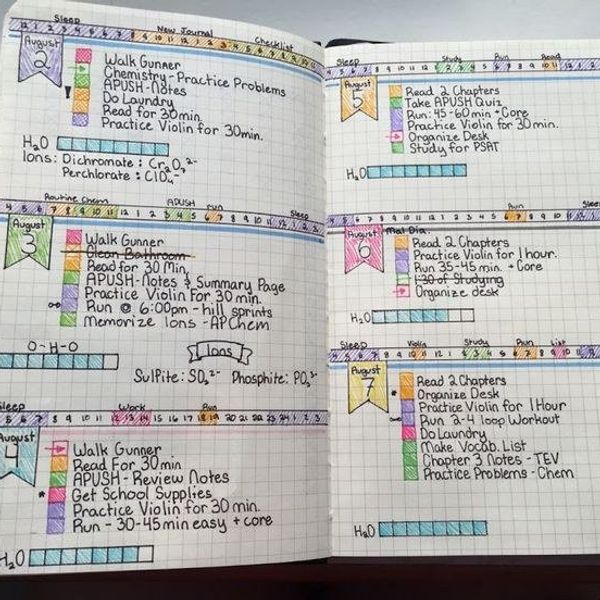 Sleep New Journal Checklist
August
2
Walk Gunner
Chemistry-Practice Problems
APUSH-Notes
! Do Laundry
Read for 30min.
Practice Violin for 30min.
H2O
Ions: Dichromate: Cr2O7 2-
Perchlorate: ClO4-
Routine Chem APUSH run Sleep
4 5 6 7 8 9 10 11 12 1 2 3 4 5 6 7 8 9 10 11 12 1 2 3
August
3
Walk Gunner
Clean Bathroom
Read for 30 Min.
APUSH-Notes & Summary Page
Practice Violin for 30min.
Run @ 6:00pm - hill sprints
Memorize Ions - AP Chem
O-H-O
Ions
Sulfite: SO3 2- Phosphite: PO3 3-
Sleep Work Run
5 6 7 8 9 10 11 12 13 14 15 16 17 18 19 20 21 22 23 24 1 2 3
August
4
Walk Gunner
Read For 30 min
APUSH - Review Notes
* Get School Supplies
Practice Violin for 30 min.
Run - 30-45min easy + core
H2O
Study Run Read
August
5
Read 2 Chapters
Take APUSH Quiz
Run: 45-60min + Core
Practice Violin for 30min.
Organize Desk
Study for PSAT
H2O
Run Sleep
August
6
Mal Dia.
Read 2 Chapters
Practice Violin for 1 hour.
Run 35-45min. + Core
1:30 of Studying
Organize desk
H2O
Sleep Violin Study Run List
August
7
Read 2 Chapters
* Organize Desk
Practice Violin for 1 Hour
Run 2-4 loop Workout
Do Laundry
Make Vocab. List
Chapter 3 Notes - TEV
Practice Problems - Chem
H2O